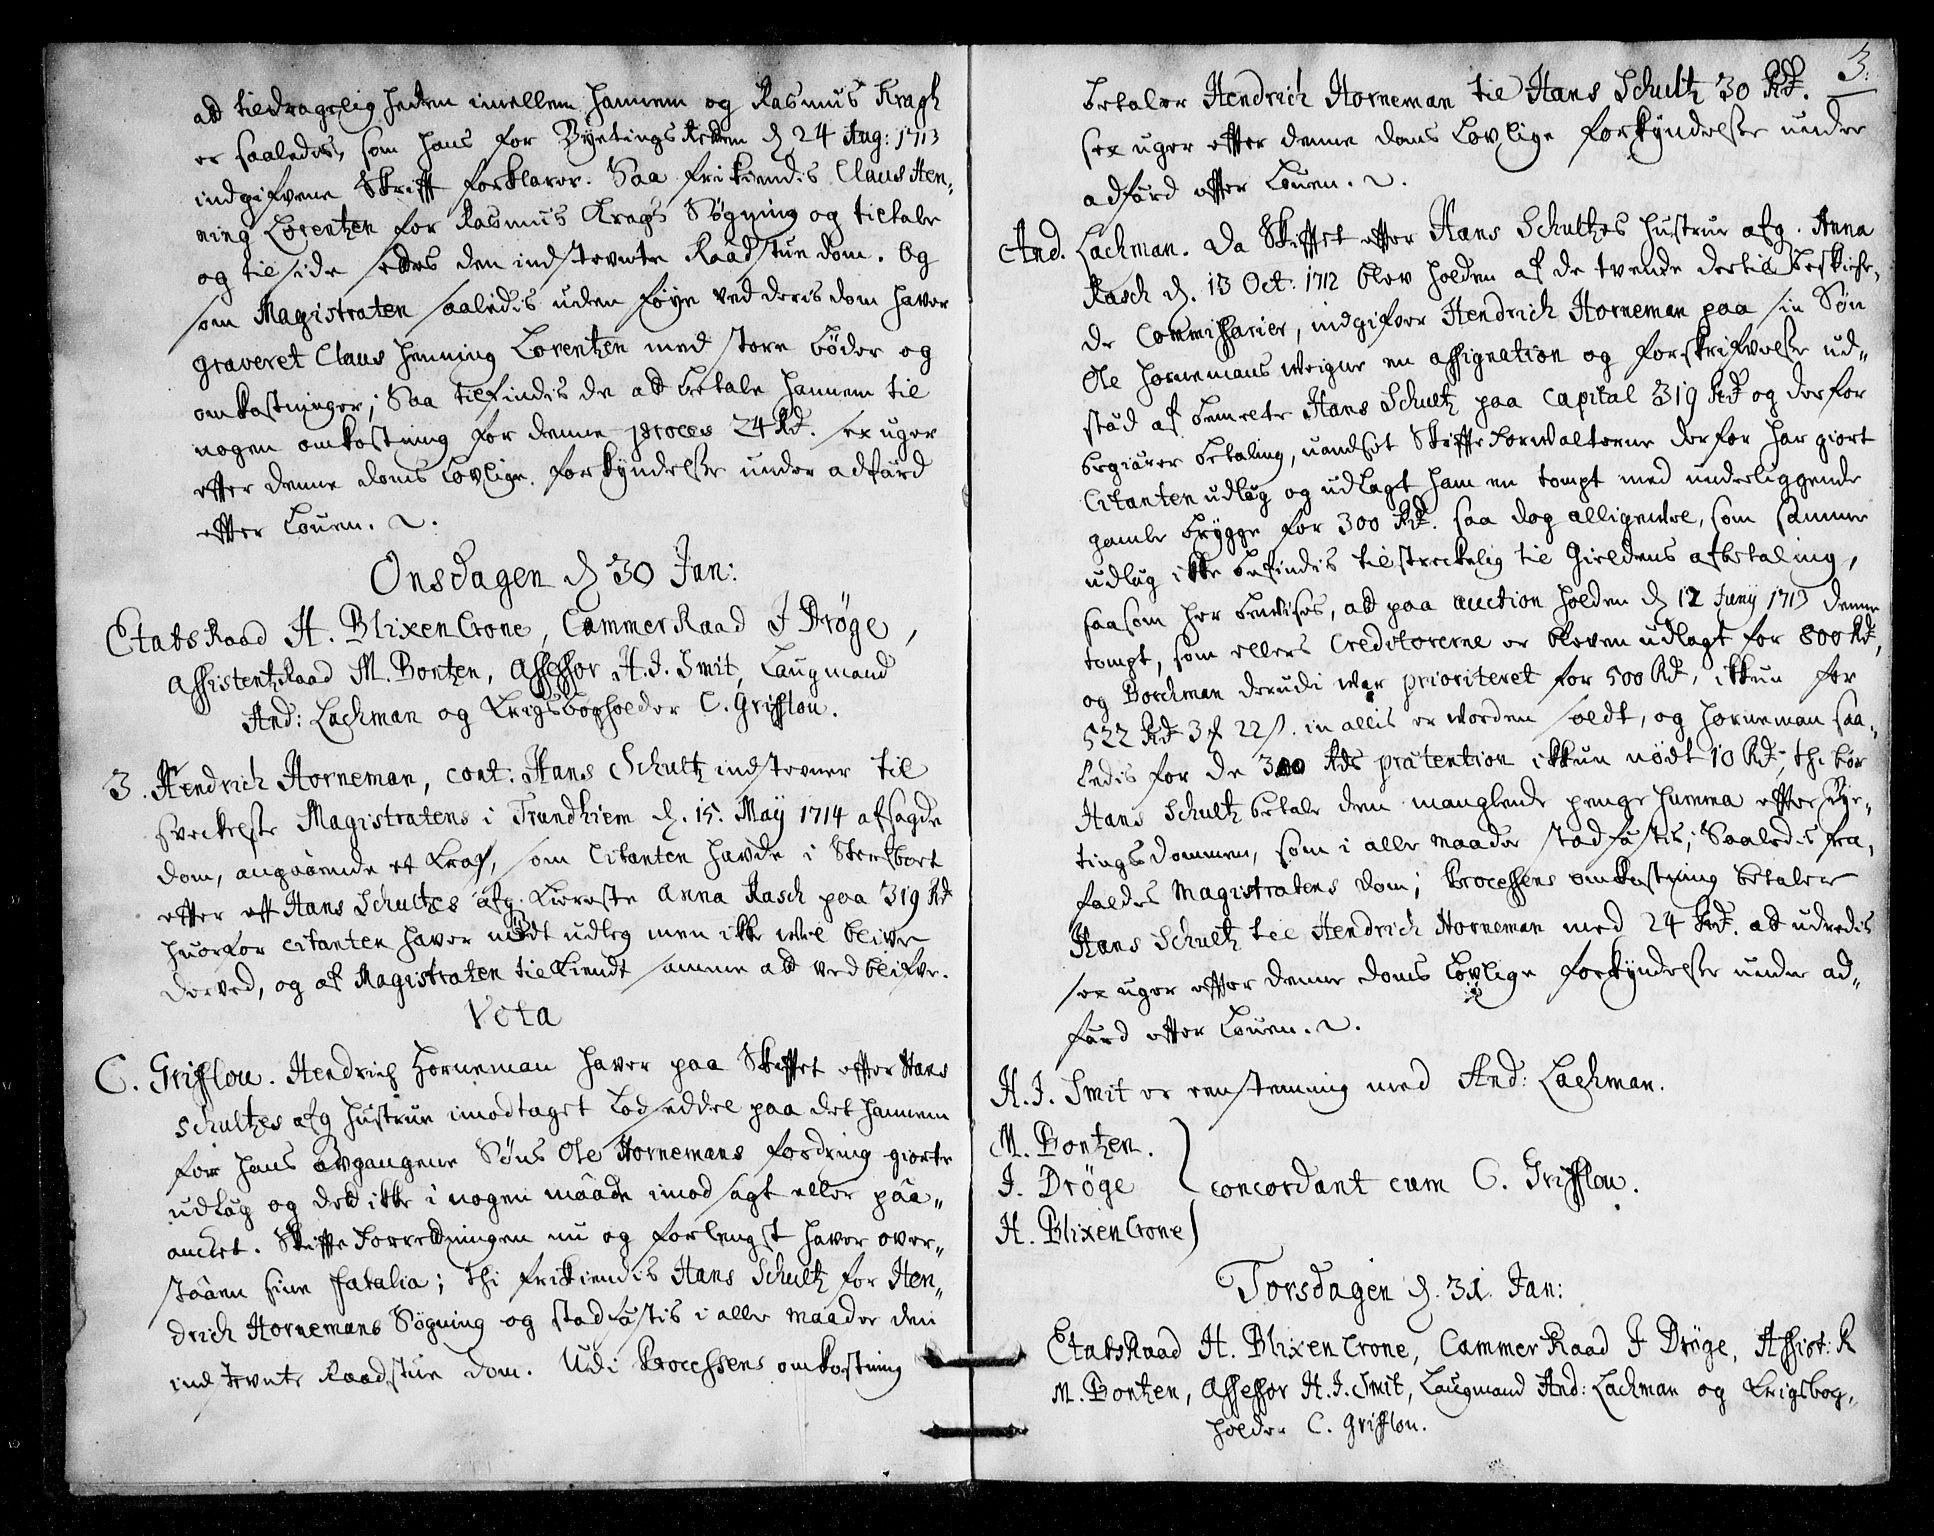 at tildragelig heden imellem hannem og Rasmus Kragh
er saaledis, som hans for Byetings Retten d. 24 Aug: 1713
indgifvene Skrift forklarer. Saa frikiendis Claus Hen-
ning Lorentzen for Rasmus Kragh Søgning og tiltale
og til side settes den indstevnte Raadstue dom. Og
som Magistraten saaledis uden føye ved deris dom haver
graveret Claus Henning Lorentzen med store bøder og
omkostninger; Saa tilfindis de at betale hannem til
nogen omkostning for denne proces 24 Rd. sex uger
efter denne doms Lovlige forkyndelse under adfærd
efter Louen.
Onsdagen d. 30 Jan:
EtatsRaad H. BlixenCrone, CammerRaad J Dröge,
AssistentzRaad M. Bontzen, Assessor H. J. Smit, Laugmand
And: Lachman og Krigsbogholder C. Grifflou.
3. Hendrich Horneman, cont: Hans Schultz indstevner til
sveckelse Magistratens i Trundhiem d. 15. Maÿ 1714 afsagde
dom, angaaende et Kraf, som Citanten havde i Sterfboet
efter Hans Schultzes afg. Kiereste Anna Rasch paa 319 Rd
huorfor citanten haver nødt udleg men ikke vel blive
derved, og af Magistraten tilkiendt samme at ved blifve.
Vota
C. Grifflou. Hendrich Horneman haver paa Skiftet efter Hans
Schultzes afg hustrue imodtaget Lodseddel paa det hannem
for hans avgangene Søns Ole Hornemans fordring giorte
udlæg og det ikke i nogen maade imod sagt eller paa-
ancket. Skifte Forretningen nu og forlengst haver over-
staaen sine fatalia; thi frikiendis Hans Schultz for Hen-
drich Hornemans Søgning og stadfæstis i alle maader den
indstevnte Raadstue dom. Udi Processens omkostning
3.
betaler Hendrich Horneman til Hans Schultz 30 Rd.
sex uger efter denne doms Lovlige forkyndelse under
adfærd efter Louen.
And. Lachman. Da Skiftet efter Hans Schultzes hustrue afg. Anna
Rasch d. 13 Oct. 1712 blev holden af de tvende dertil beskicke-
de Commissarier, indgifver Hendrich Horneman paa sin Søn
Ole Hornemans weigne en assignation og forskrifvelse ud-
stæd af bemelte Hans Schultz paa Capital 319 Rd og derfor
begiærer betaling, uandset Skifte Forwalterne derfor har giort
Citanten udlæg og udlagt ham en tompt med underliggende
gamle brygge for 300 Rd. saa dog alligevel, som samme
udlæg ikke befindes tilstreckelig til Gieldens afbetaling,
saasom her bevises, at paa auction holden d. 12 Juny 1713 denne
tompt, som ellers Creditorerne er bleven udlagt for 800 Rd,
og Borchman derudi war prioriteret for 500 Rd, ikkun for
522 Rd 3 f 22 s. in allis er worden soldt, og Horneman saa-
ledis for de 300 Rds prætention ikkun nødt 10 Rd; thi bør
Hans Schultz betale den manglende penge Summa efter Bye-
tings dommen, som i alle maader stadfæstis; Saaledis fra-
faldes Magistratens dom; Processens omkostning betaler
Hans Schultz til Hendrich Horneman med 24 Rd. at udredis
sex uger efter denne doms Lovlige forkyndelse under ad-
færd efter Louen.
H. J. Smit er eenstemmig med And: Lachman.
M. Bontzen.
J. Dröge concordant cum C. Grifflou.
H. BlixenCrone
Torsdagen d. 31. Jan:
EtatsRaad H. BlixenCrone, CammerRaad J Dröge, Assist: R
M. Bontzen, Assessor H. J. Smit, Laugmand And: Lachman og Krigsbog-
holder C. Grifflou.